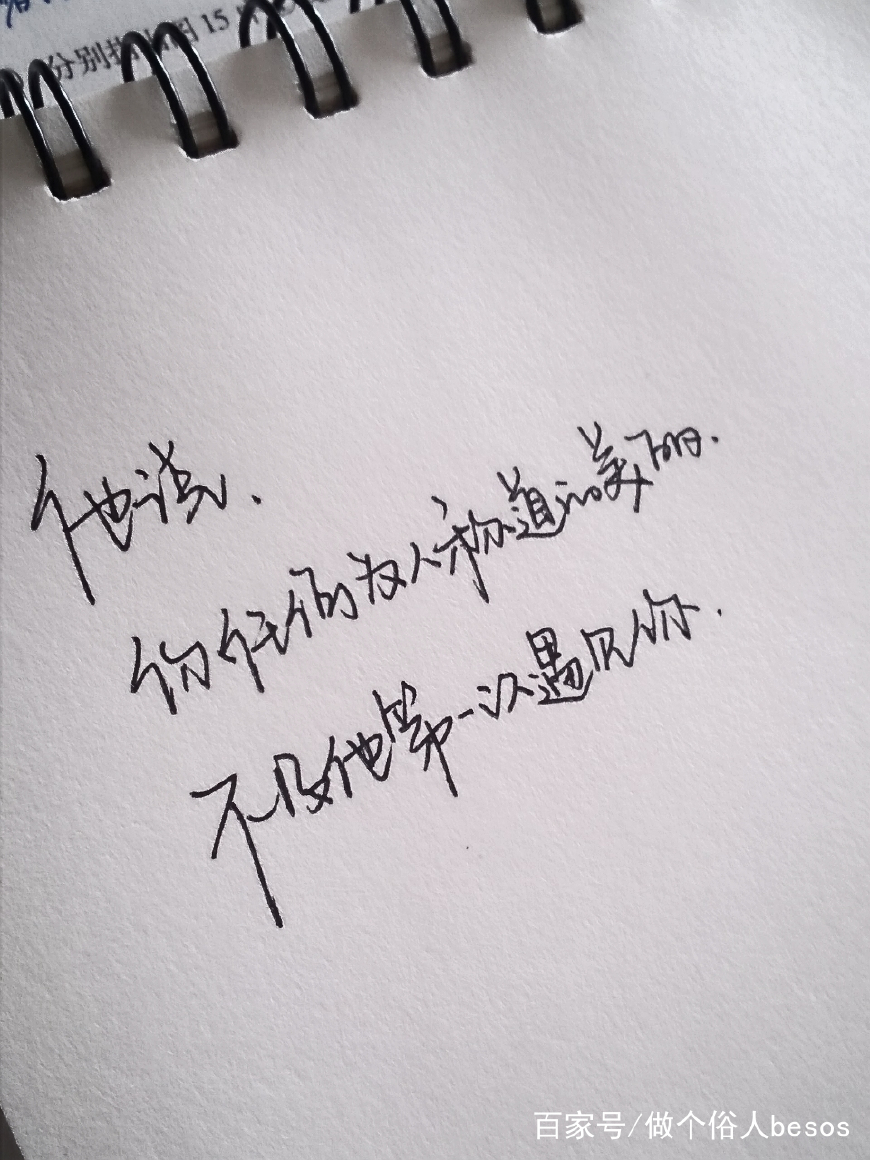 分别指出图 15
他说、
你任何为人称道的美丽.
不及他第一次遇见你.
百家号/做个俗人besos